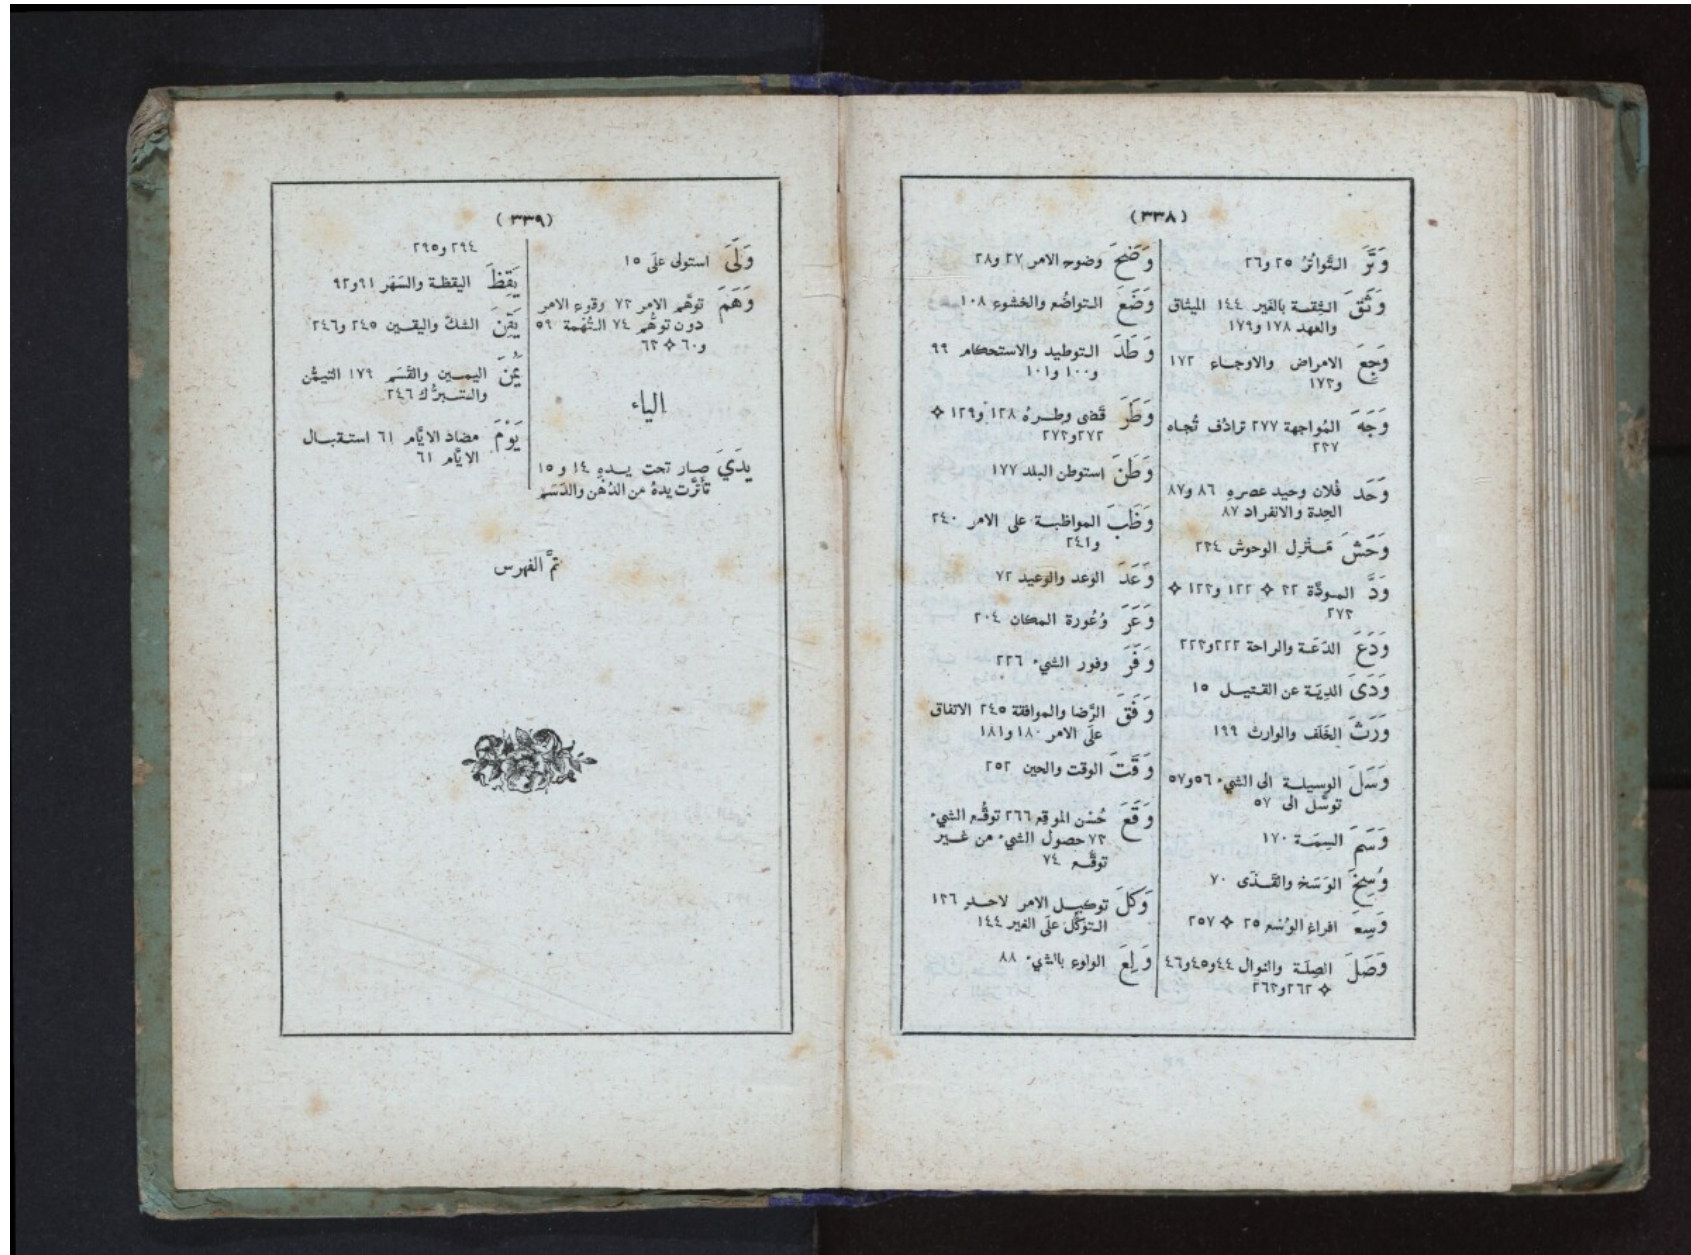 (٣٣٨)
وَتَرَ التَّواتُرُ ٢٥ و٢٦
وَثَقَ الثِّقــة بالغير ١٤٤ الميثاق
والعهد ١٧٨ و١٧٩
وَجِعَ الامراض والاوجــاع ١٧٢
و١٧٣
وَجَهَ المُواجهة ٢٧٧ ترادُف تُجـاه
٢٣٧
وَحَد فُلان وحيد عصرهِ ٨٦ و٨٧
الحِدة والانفراد ٨٧
وَحَشَ مَــنْزِل الوحوش ٢٣٤
وَدَّ المـودَّة ٢٢ ✧ ١٢٢ و١٢٣ ✧
٢٧٣
وَدَعَ الدَّعَـة والراحة ٢٢٢ و٢٢٣
وَدَى الدِيَـة عن القـتيــل ١٥
وَرَثَ الخَلَف والوارث ١٩٩
وَسَلَ الوسيلــة الى الشيء ٥٦ و٥٧
توسَّل الى ٥٧
وَسَمَ السِمَــة ١٧٠
وَسِخَ الوَسَخ والقَــذَى ٧٠
وَسِعَ افراغ الوُسْع ٢٥ ✧ ٢٥٧
وَصَلَ الصِلَــة والنوال ٤٤ و٤٥ و٤٦
✧ ٢٦٢ و٢٦٣
وَضَحَ وضوح الامر ٢٧ و٢٨
وَضَعَ الـتواضُع والخشوع ١٠٨
وَطَدَ الـتوطيد والاستحكام ٩٩
و١٠٠ و١٠١
وَطَرَ قَضى وطــرهُ ١٢٨ و١٢٩ ✧
٢٧٢ و٢٧٣
وَطَنَ استوطن البلد ١٧٧
وَظَبَ المواظبــة على الامر ٢٤٠
و٢٤١
وَعَدَ الوعد والوعيد ٧٢
وَعَرَ وُعُورة المكان ٢٠٤
وَفَرَ وفور الشيء ٢٢٦
وَفَقَ الرِّضا والموافقة ٢٤٥ الاتفاق
علَى الامر ١٨٠ و١٨١
وَقَتَ الوقت والحين ٢٥٢
وَقَعَ حُسْن الموقع ٢٦٦ توقُّع الشيء
٧٣ حصول الشيء من غــير
توقُّــع ٧٤
وَكَلَ توكيــل الامر لاحــدٍ ١٣٦
الـتوكُّل علَى الغير ١٤٤
وَلِعَ الولوع بالشيء ٨٨
(٣٣٩)
وَلَّى استولى علَى ١٥
وَهَمَ توهَّم الامر ٧٣ وقوع الامر
دون توهُّم ٧٤ الـتُّهْمة ٥٩
و٦٠ ✧ ٦٢
الياء
يدَيَ صــار تحت يــدهِ ١٤ و١٥
تأثَّرت يدهُ من الدُهْن والدَسَم
٢٩٤ و٢٩٥
يَقِظَ اليقظـة والسَهَر ٩١ و٩٢
يَقِنَ الشكّ واليقــين ٢٤٥ و٢٤٦
يَمُنَ اليمــين والقَسَم ١٧٩ التيمُّن
والــتــبرُّك ٢٤٦
يَوْمَ مضادّ الايَّام ٦١ استقبــال
الايَّام ٦١
تمَّ الفهرس